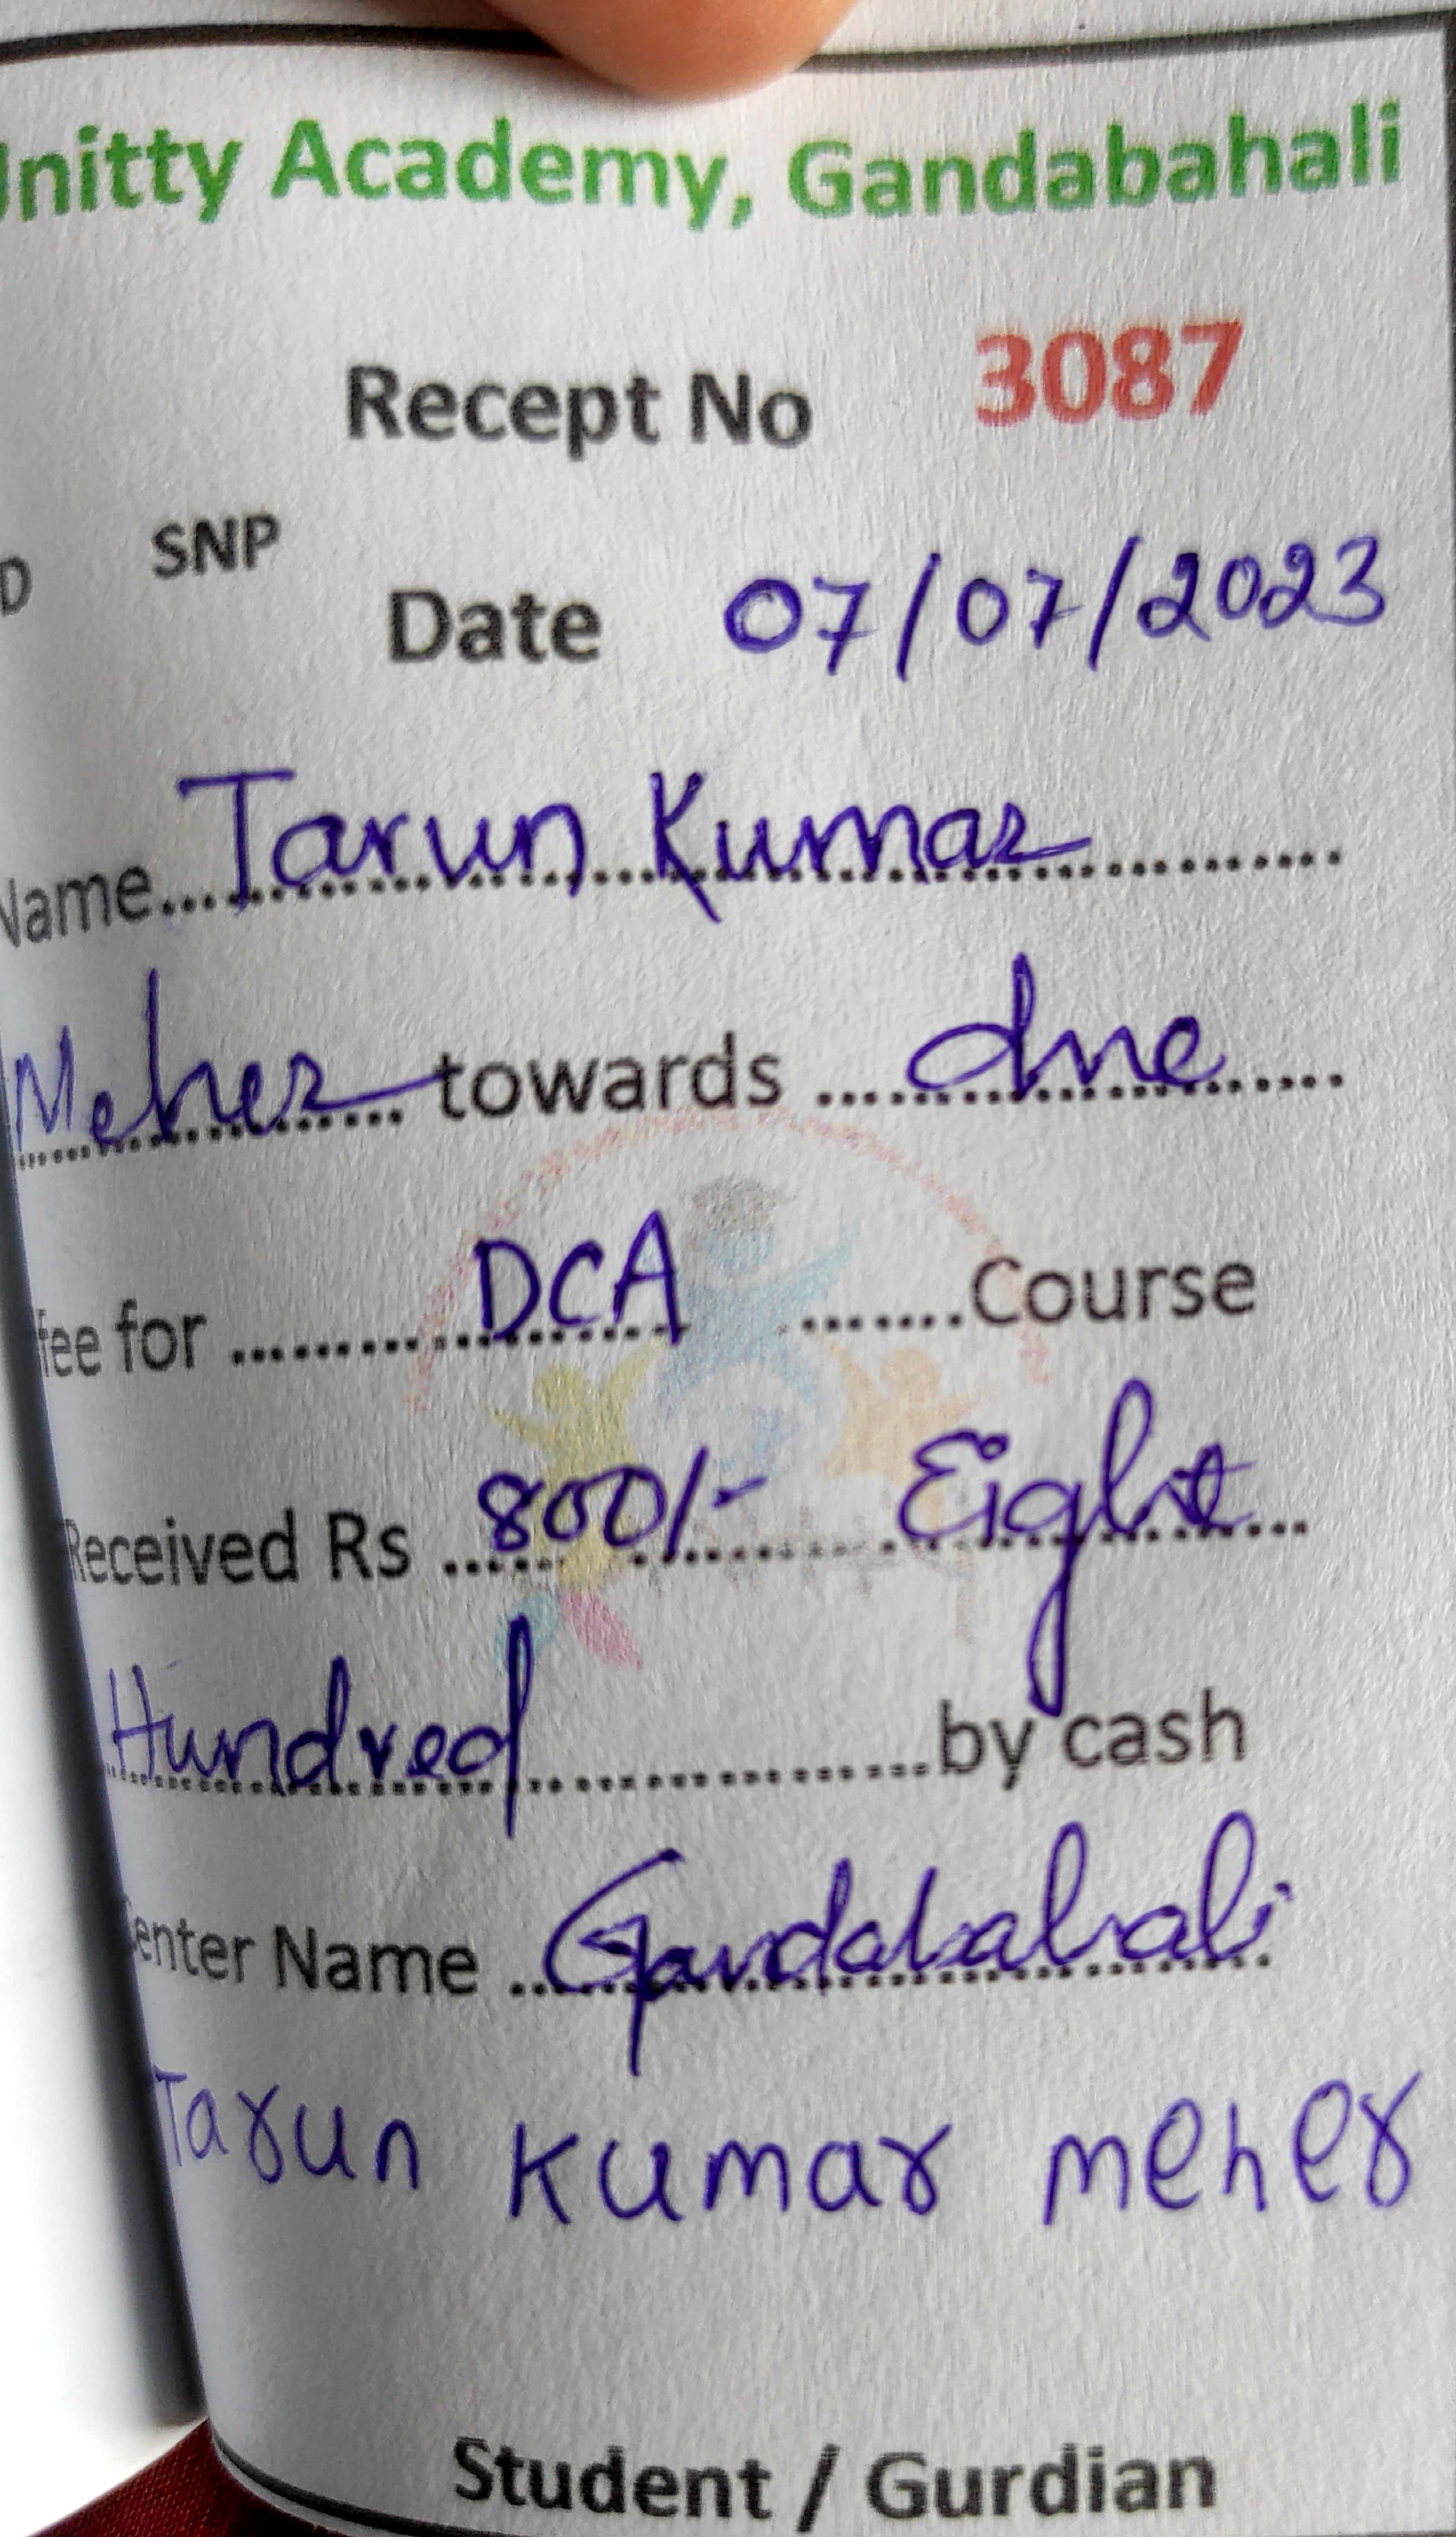 Unitty Academy, Gandabahali
Recept No 3087
D SNP
Date 07/07/2023
Name...Tarun Kumar
Meher towards ... due
fee for ... DCA ... Course
Received Rs ... 800/- Eight
Hundred ... by cash
Center Name ... Gandabahali
Tarun Kumar meher
Student / Gurdian